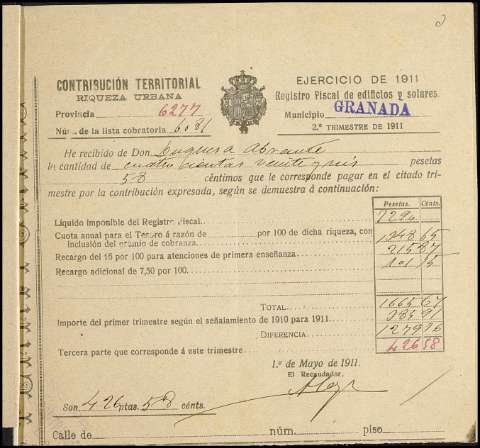 CONTRIBUCIÓN TERRITORIAL
RIQUEZA URBANA
Provincia 6277
Núm. de la lista cobratoria 6081
EJERCICIO DE 1911
Registro Fiscal de edificios y solares.
Municipio GRANADA
2.º TRIMESTRE DE 1911
He recibido de Don
la cantidad de cuatrocientas veinte y seis pesetas
58 céntimos que le corresponde pagar en el citado tri-
mestre por la contribución expresada, según se demuestra á continuación:
Pesetas. Cents.
Líquido imponible del Registro Fiscal. 7296
Cuota anual para el Tesoro á razón de por 100 de dicha riqueza, con
inclusión del premio de cobranza.
Recargo del 16 por 100 para atenciones de primera enseñanza.
Recargo adicional de 7,50 por 100.
TOTAL 1665 67
Importe del primer trimestre según el señalamiento de 1910 para 1911.
DIFERENCIA 1279 76
Tercera parte que corresponde á este trimestre 426 58
1.º de Mayo de 1911.
El Recaudador,
Son 426 ptas. 58 cénts.
Calle de núm. piso